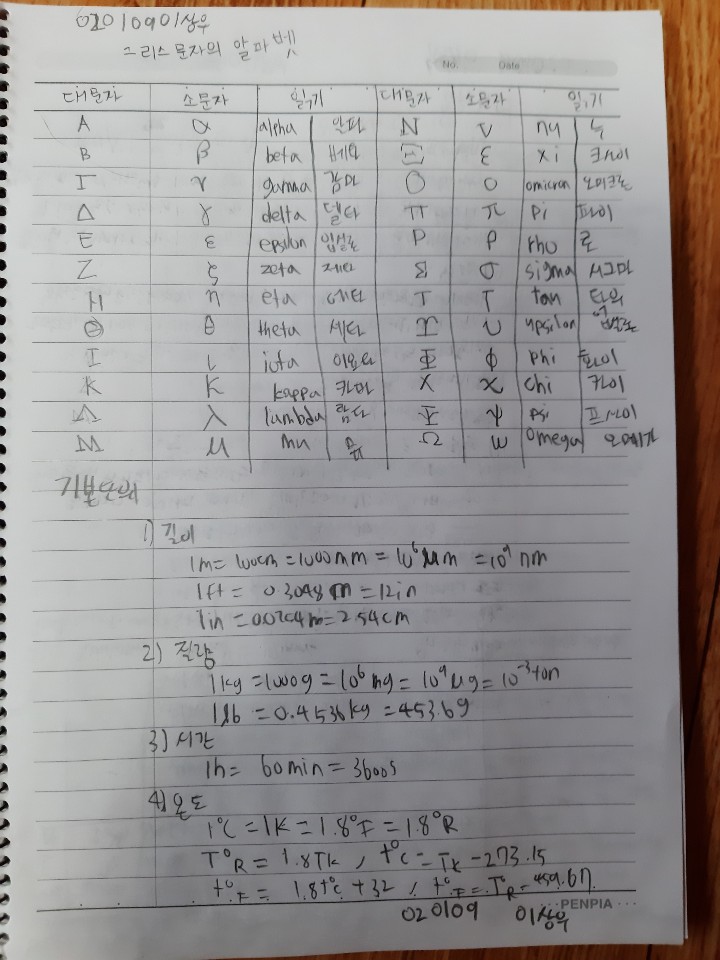 020109 이상우
그리스문자의 알파벳
No. Date
대문자 소문자 읽기 대문자 소문자 읽기
A α alpha 알파 N ν nu 뉴
B β beta 베타 Ξ ξ xi 크사이
Γ γ gamma 감마 O o omicron 오미크론
Δ γ delta 델타 π π pi 파이
E ε epsilon 입실론 P ρ rho 로
Z ξ zeta 제타 Σ σ sigma 시그마
H η eta 에타 T τ tau 타우
Θ θ theta 세타 Υ υ upsilon
I ι iota 이오타 Φ φ phi 화이
K K kappa 카파 X χ chi 카이
Λ λ lambda 람다 ψ psi 프사이
M μ mu 뮤 Ω ω omega 오메가
기본단위
1) 길이
1m = 100cm = 1000mm = 10⁶ μm = 10⁹ nm
1ft = 0.3048 m = 12in
1in = 0.0254m = 2.54cm
2) 질량
1kg = 1000g = 10⁶ mg = 10⁹ μg = 10⁻³ ton
1lb = 0.4536kg = 453.6g
3) 시간
1h = 60min = 3600s
4) 온도
1°C = 1K = 1.8°F = 1.8°R
T°R = 1.8TK, t°C = TK - 273.15
t°F = 1.8t°C + 32, t°F = T°R - 459.67
PENPIA
020109 이상우